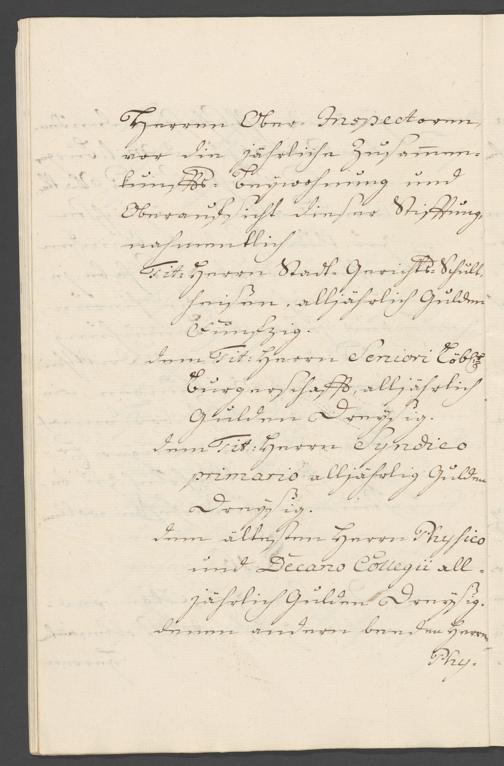 Herren Ober-Inspectoren,
vor die jährliche Zusammen-
kunffts-Beywohnung und
Oberauffsicht dieser Stifftung,
nahmentlich
Tit: Herrn Stadt-Gerichts-Schult-
heisen, alljährlich Gulden
Fünfzig.
dem Tit: Herrn Seniori Löbl:
Burgerschafft, alljährlich
Gulden Dreysig.
dem Tit: Herrn Syndico
primario alljährlig Gulden
Dreysig.
dem ältesten Herrn Physico
und Decano Collegii all-
jährlich Gulden Dreysig.
denen andern beeden Herrn
Phy-